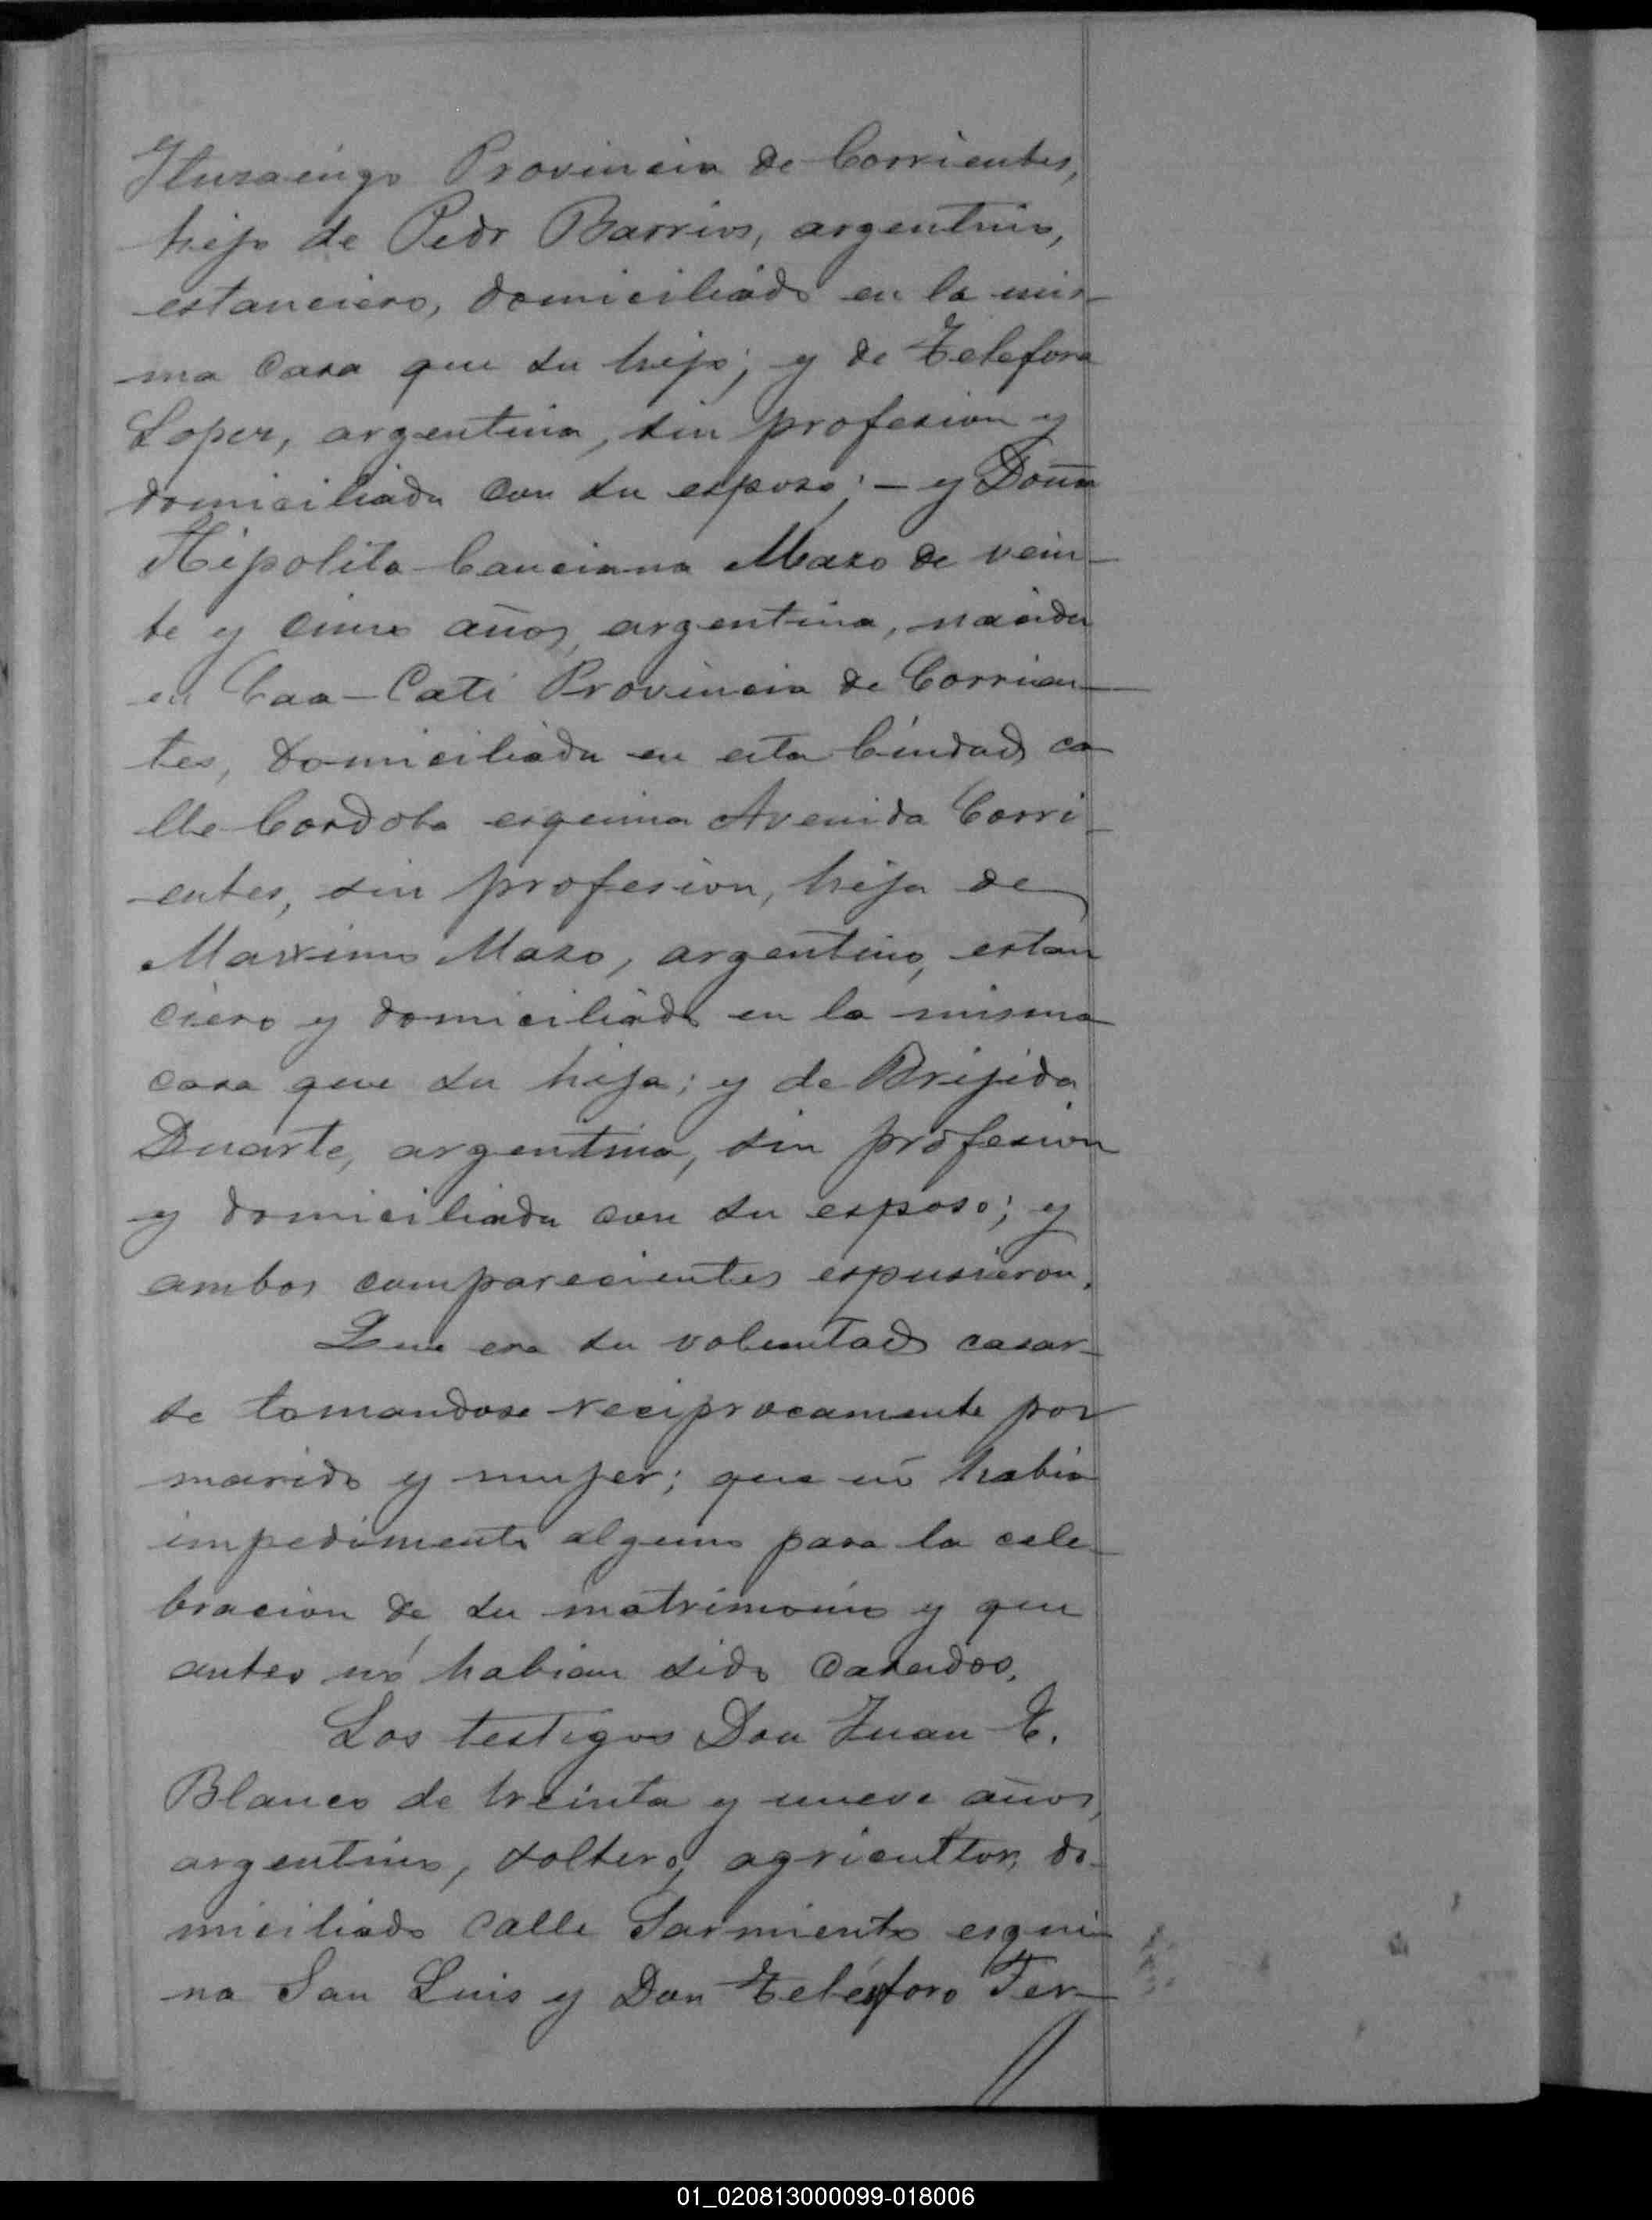 Ituzaingo Provincia de Corrientes,
hijo de Pedr Barrios, argentino,
estanciero, domiciliado en la mis-
ma casa que su hijo; y de Telefora
Lopez, argentina, sin profesion y
domiciliada con su esposo; - y Doña
Hipolita Canciana Mazo de vein-
te y cinco años, argentina, nacida
en Caa-Cati Provincia de Corrien-
tes, domiciliada en esta Ciudad ca
lle Cordoba esquina Avenida Corri-
entes, sin profesion, hija de
Maximo Mazo, argentino, estan
ciero y domiciliado en la misma
casa que su hija; y de Brijida
Duarte, argentina, sin profesion
y domiciliada con su esposo; y
ambos comparecientes espusieron.
Que era su voluntad casar-
se tomandose reciprocamente por
marido y mujer; que nó habia
impedimento alguno para la cele-
bracion de su matrimonio y que
antes nó habian sido casados.
Los testigos Don Juan E.
Blanco de treinta y nueve años,
argentino, soltero, agricultor, do-
miciliado calle Sarmiento esqui-
na San Luis y Don Telésforo Fer-
01_020813000099-018006